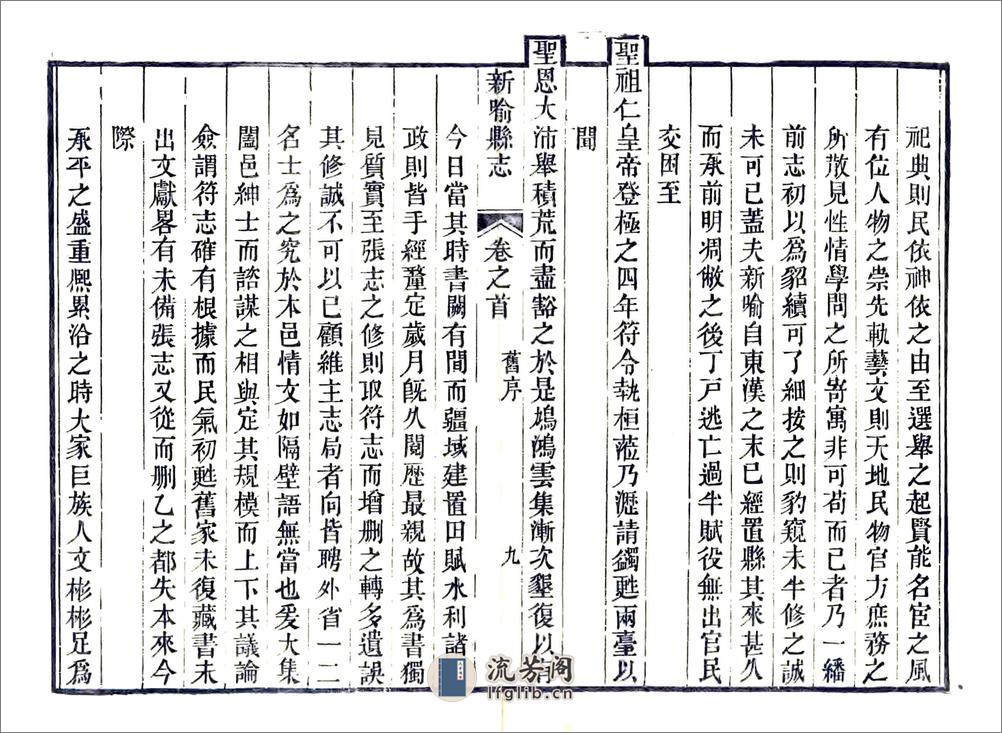 祀典則民依神依之由至選舉之起賢能名宦之風
有位人物之崇先軌藝文則天地民物官方庶務之
所散見性情學問之所寄寓非可苟而已者乃一繙
前志初以爲貂續可了細按之則豹窺未半修之誠
未可已蓋夫新喻自東漢之末已經置縣其來甚久
而承前明凋敝之後丁戸逃亡過半賦役無出官民
交困至
聖祖仁皇帝登極之四年符令執桓蒞乃瀝請蠲甦兩臺以
聞
聖恩大沛舉積荒而盡豁之於是鳩鴻雲集漸次墾復以有
新喻縣志 卷之首 舊序 九
今日當其時書闕有間而疆域建置田賦水利諸
政則皆手經釐定歲月旣久閱歷最親故其爲書獨
見質實至張志之修則取符志而增刪之轉多遺誤
其修誠不可以已顧維主志局者向皆聘外省一二
名士爲之究於本邑情文如隔壁語無當也爰大集
闔邑紳士而諮謀之相與定其規模而上下其議論
僉謂符志確有根據而民氣初甦舊家未復藏書未
出文獻畧有未備張志又從而刪乙之都失本來今
際
承平之盛重熙累洽之時大家巨族人文彬彬足爲
流芳阁
lfglib.cn